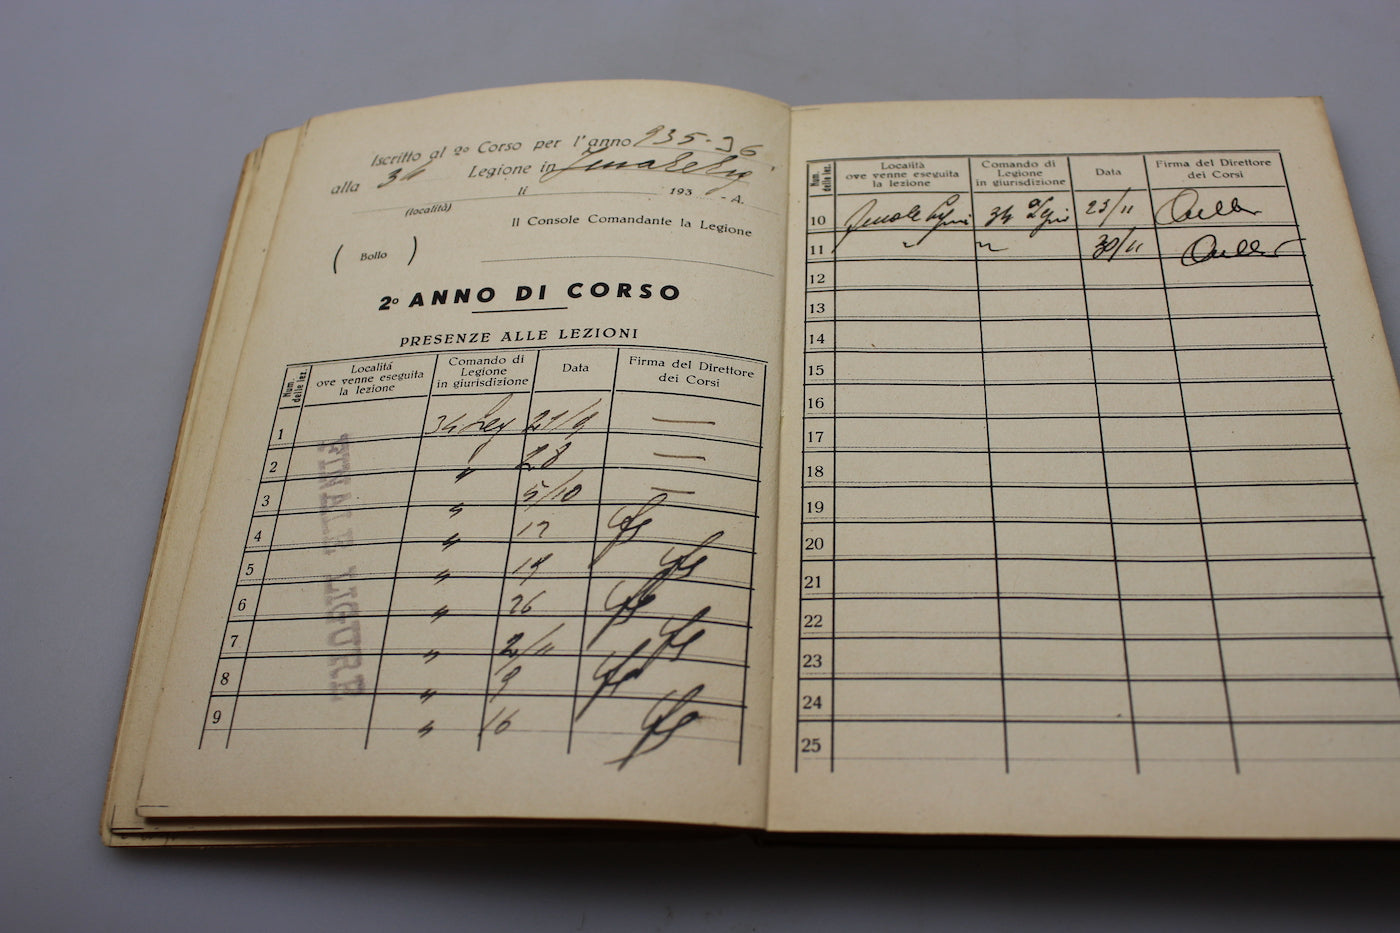 Iscritto al 2º Corso per l'anno 935-36
alla 34 Legione in Finale Lig
(località) lì 193 - A.
Il Console Comandante la Legione
( Bollo )
2º ANNO DI CORSO
PRESENZE ALLE LEZIONI
Num. delle lez. Località ove venne eseguita la lezione Comando di Legione in giurisdizione Data Firma del Direttore dei Corsi
1 34 Leg 21/9 —
2 " 28 —
3 " 5/10 —
4 " 12
5 " 19
6 " 26
7 " 2/11
8 " 9
9 " 16
FINALE LIGURE
Num. delle lez. Località ove venne eseguita la lezione Comando di Legione in giurisdizione Data Firma del Direttore dei Corsi
10 Finale Ligure 34ª Legio 23/11
11 " " 30/11
12
13
14
15
16
17
18
19
20
21
22
23
24
25